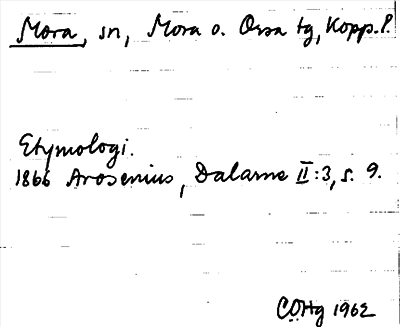 Mora, sn, Mora o. Orsa tg, Kopp. l.
Etymologi.
1866 Arosenius, Dalarne II:3, s. 9.
COHg 1962